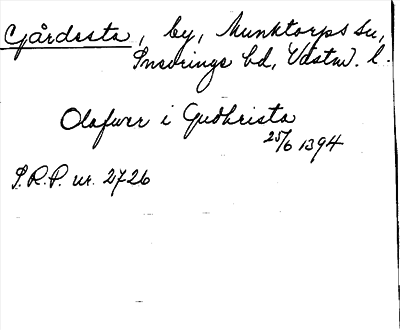 Gårdesta, by, Munktorps sn,
Snevringe hd, Västm. l.
Olafwer i Gudhrista
25/6 1394
S.R.P. nr. 2726